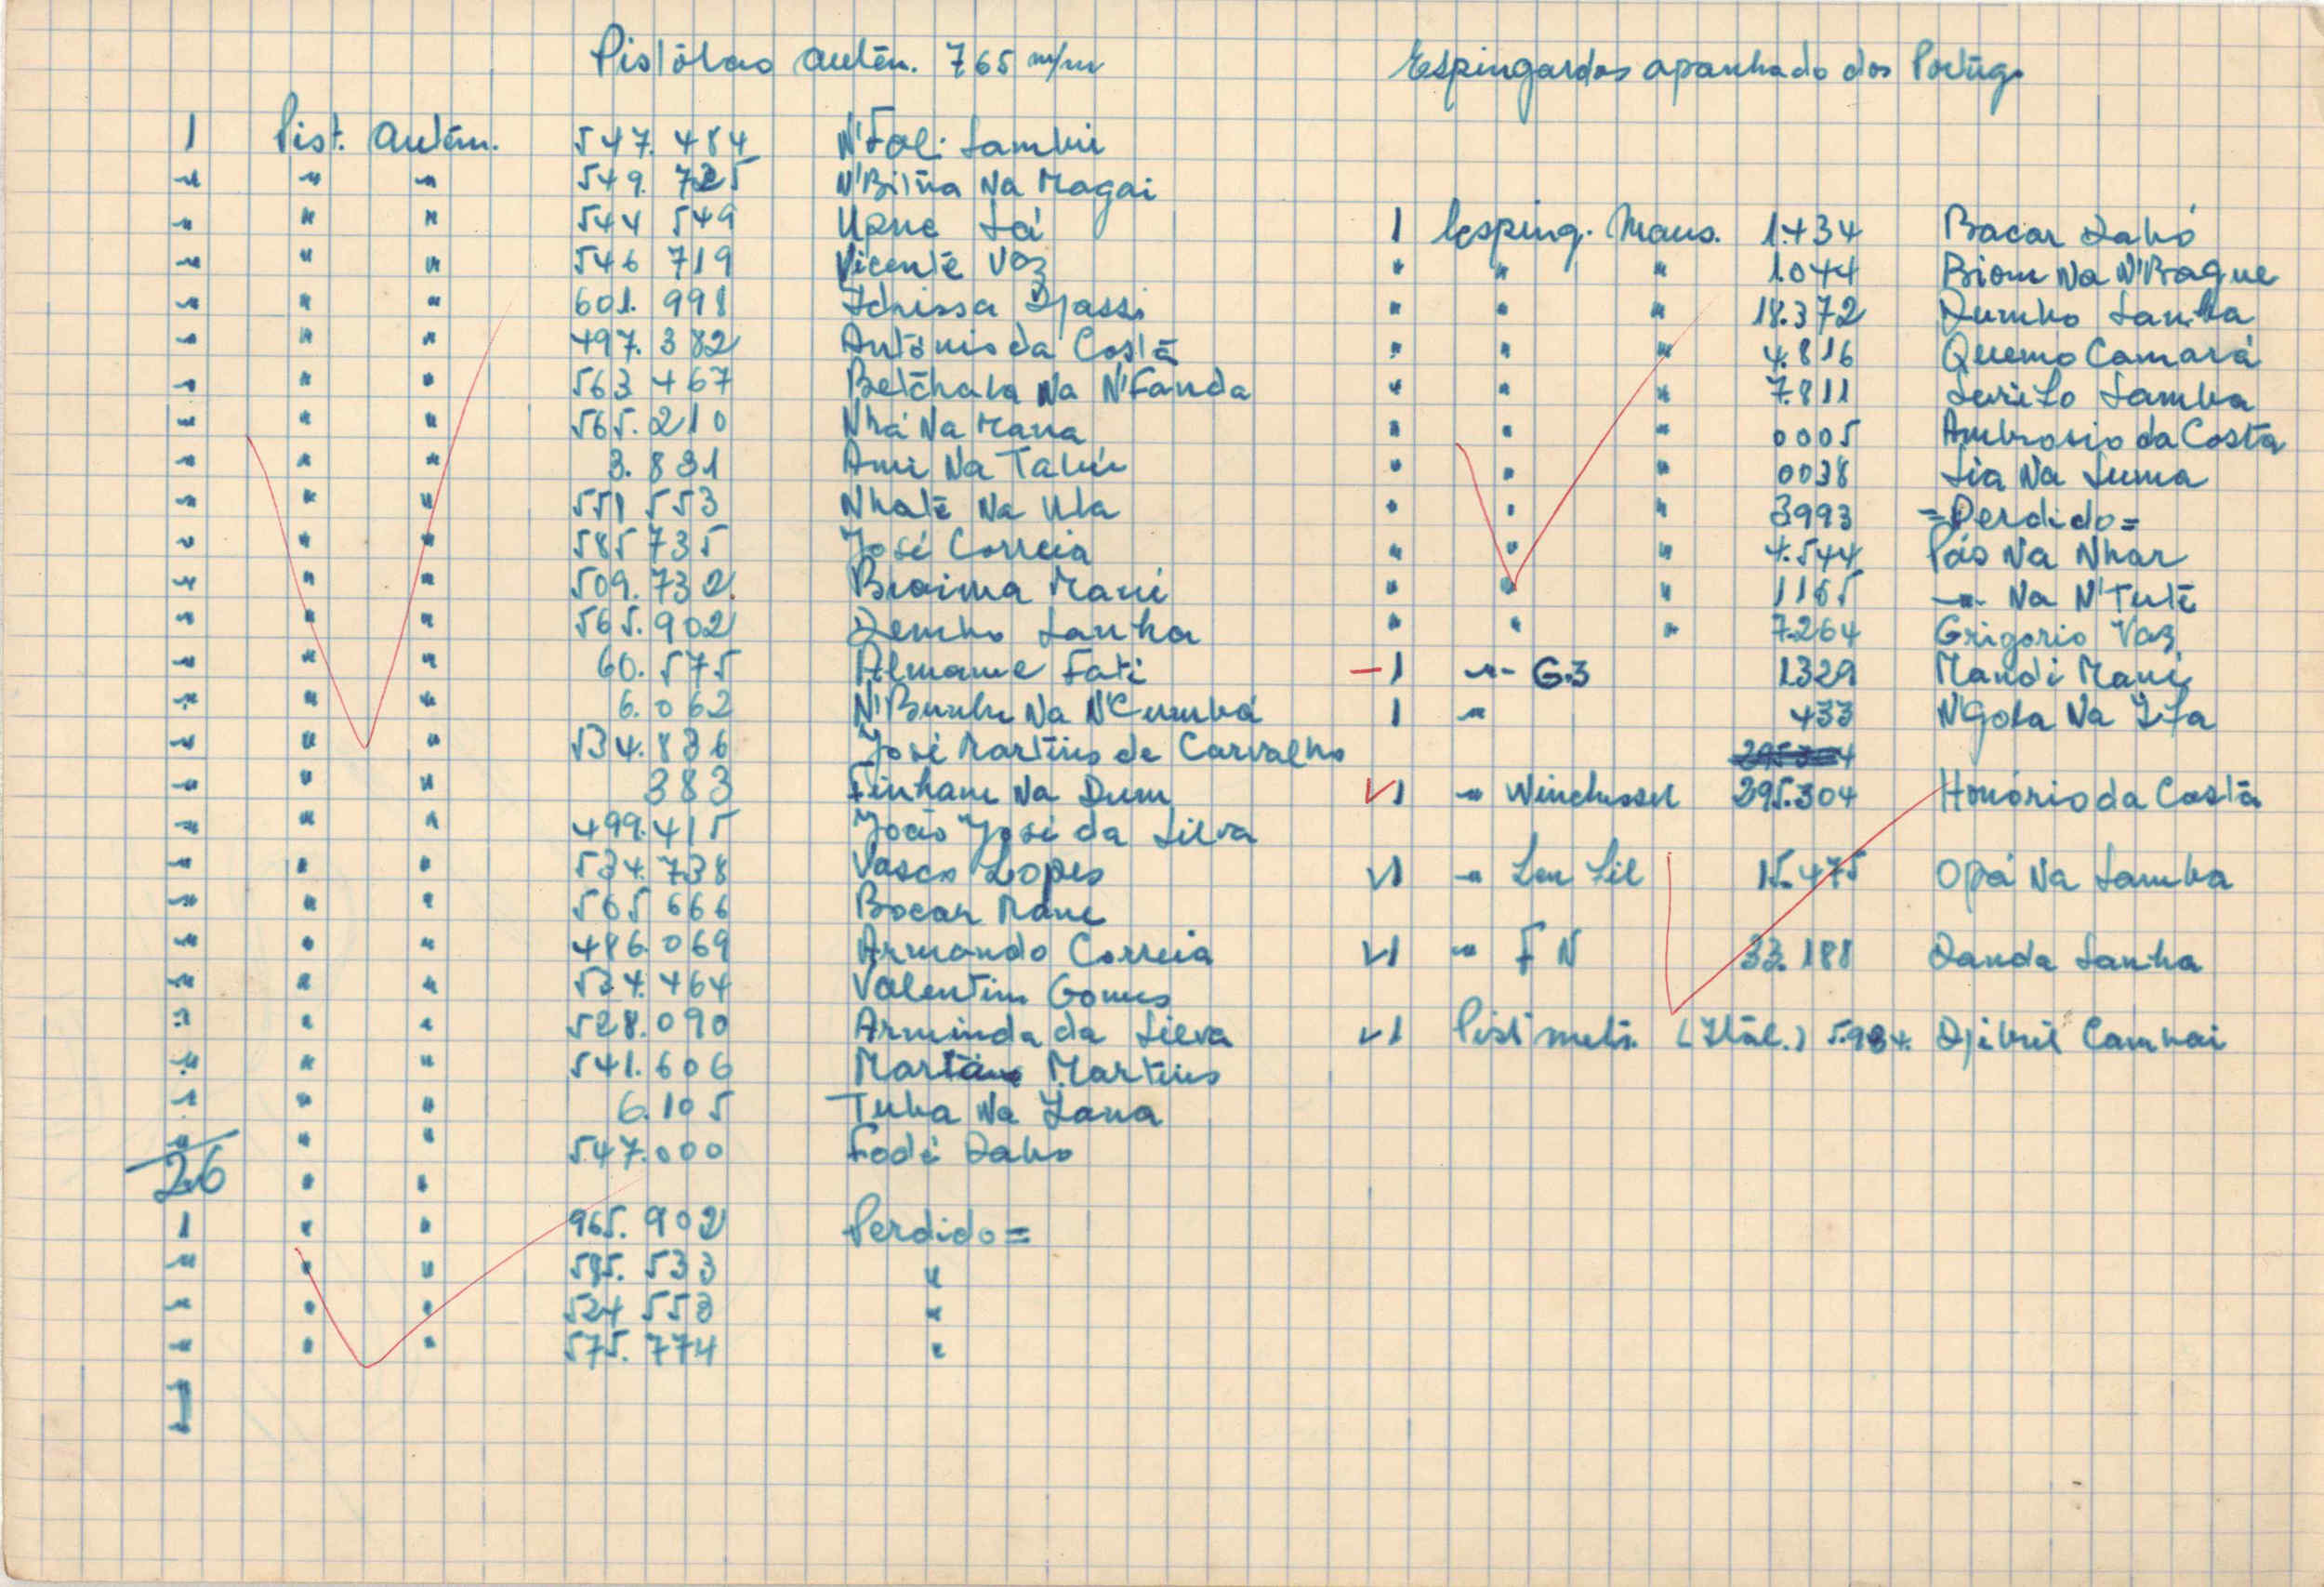 Pistólas autēm. 765 m/m
1 Pist. Autēm. 547.484 N'Fali Sambú
" " " 549.725 N'Bitña Na Magai
" " " 544 549 Upne Sá
" " " 546 719 Vicente Vaz
" " " 601.998 Idrissa Djassi
" " " 497.382 António da Costa
" " " 563 467 Betchala Na N'Fanda
" " " 565.210 Nhá Na Mana
" " " 3.831 Ami Na Tabú
" " " 551 553 Nhatē Na Ula
" " " 585 735 José Correia
" " " 509.732 Braima Mané
" " " 565.902 Demho Sanha
" " " 60.575 Almame Fati
" " " 6.062 N'Bunhe Na N'Cumbá
" " " 534.836 José Martins de Carvalho
" " " 383 Finhane Na Dum
" " " 499.415 João José da Silva
" " " 534.738 Vasco Lopes
" " " 565 666 Bocar Mane
" " " 486.069 Armando Correia
" " " 534.464 Valentim Gomes
" " " 528.090 Arminda da Silva
" " " 541.606 Martins
" " " 6.105 Tuba Na Zana
" " " 547.000 Fodé Dabo
26 " "
1 " " 965.902 Perdido=
" " " 595.533 "
" " " 524 553 "
" " " 575.774 "
Espingardas apanhado dos Portug.
1 Esping. Maus. 1.434 Bacar Dabó
" " " 1.044 Biom Na N'Bague
" " " 18.372 Dumho Sanha
" " " 4.816 Quemo Camará
" " " 7.811 Samba
" " " 0005 Ambrosio da Costa
" " " 0038 Sia Na Suma
" " " 3993 =Perdido=
" " " 4.544 Pás Na Nhar
" " " 1165 " Na N'Tutē
" " " 7.264 Grigorio Vaz
-1 " G.3 1329 Mandi Mané
1 " 433 N'Gola Na
V1 " Winchussel 295.304 Honório da Costa
V1 " 15.475 Opá Na Samba
V1 " F N 33.188 Danda Sanha
V1 Pist metr. (Itál.) 5.984. Djibril Camhai